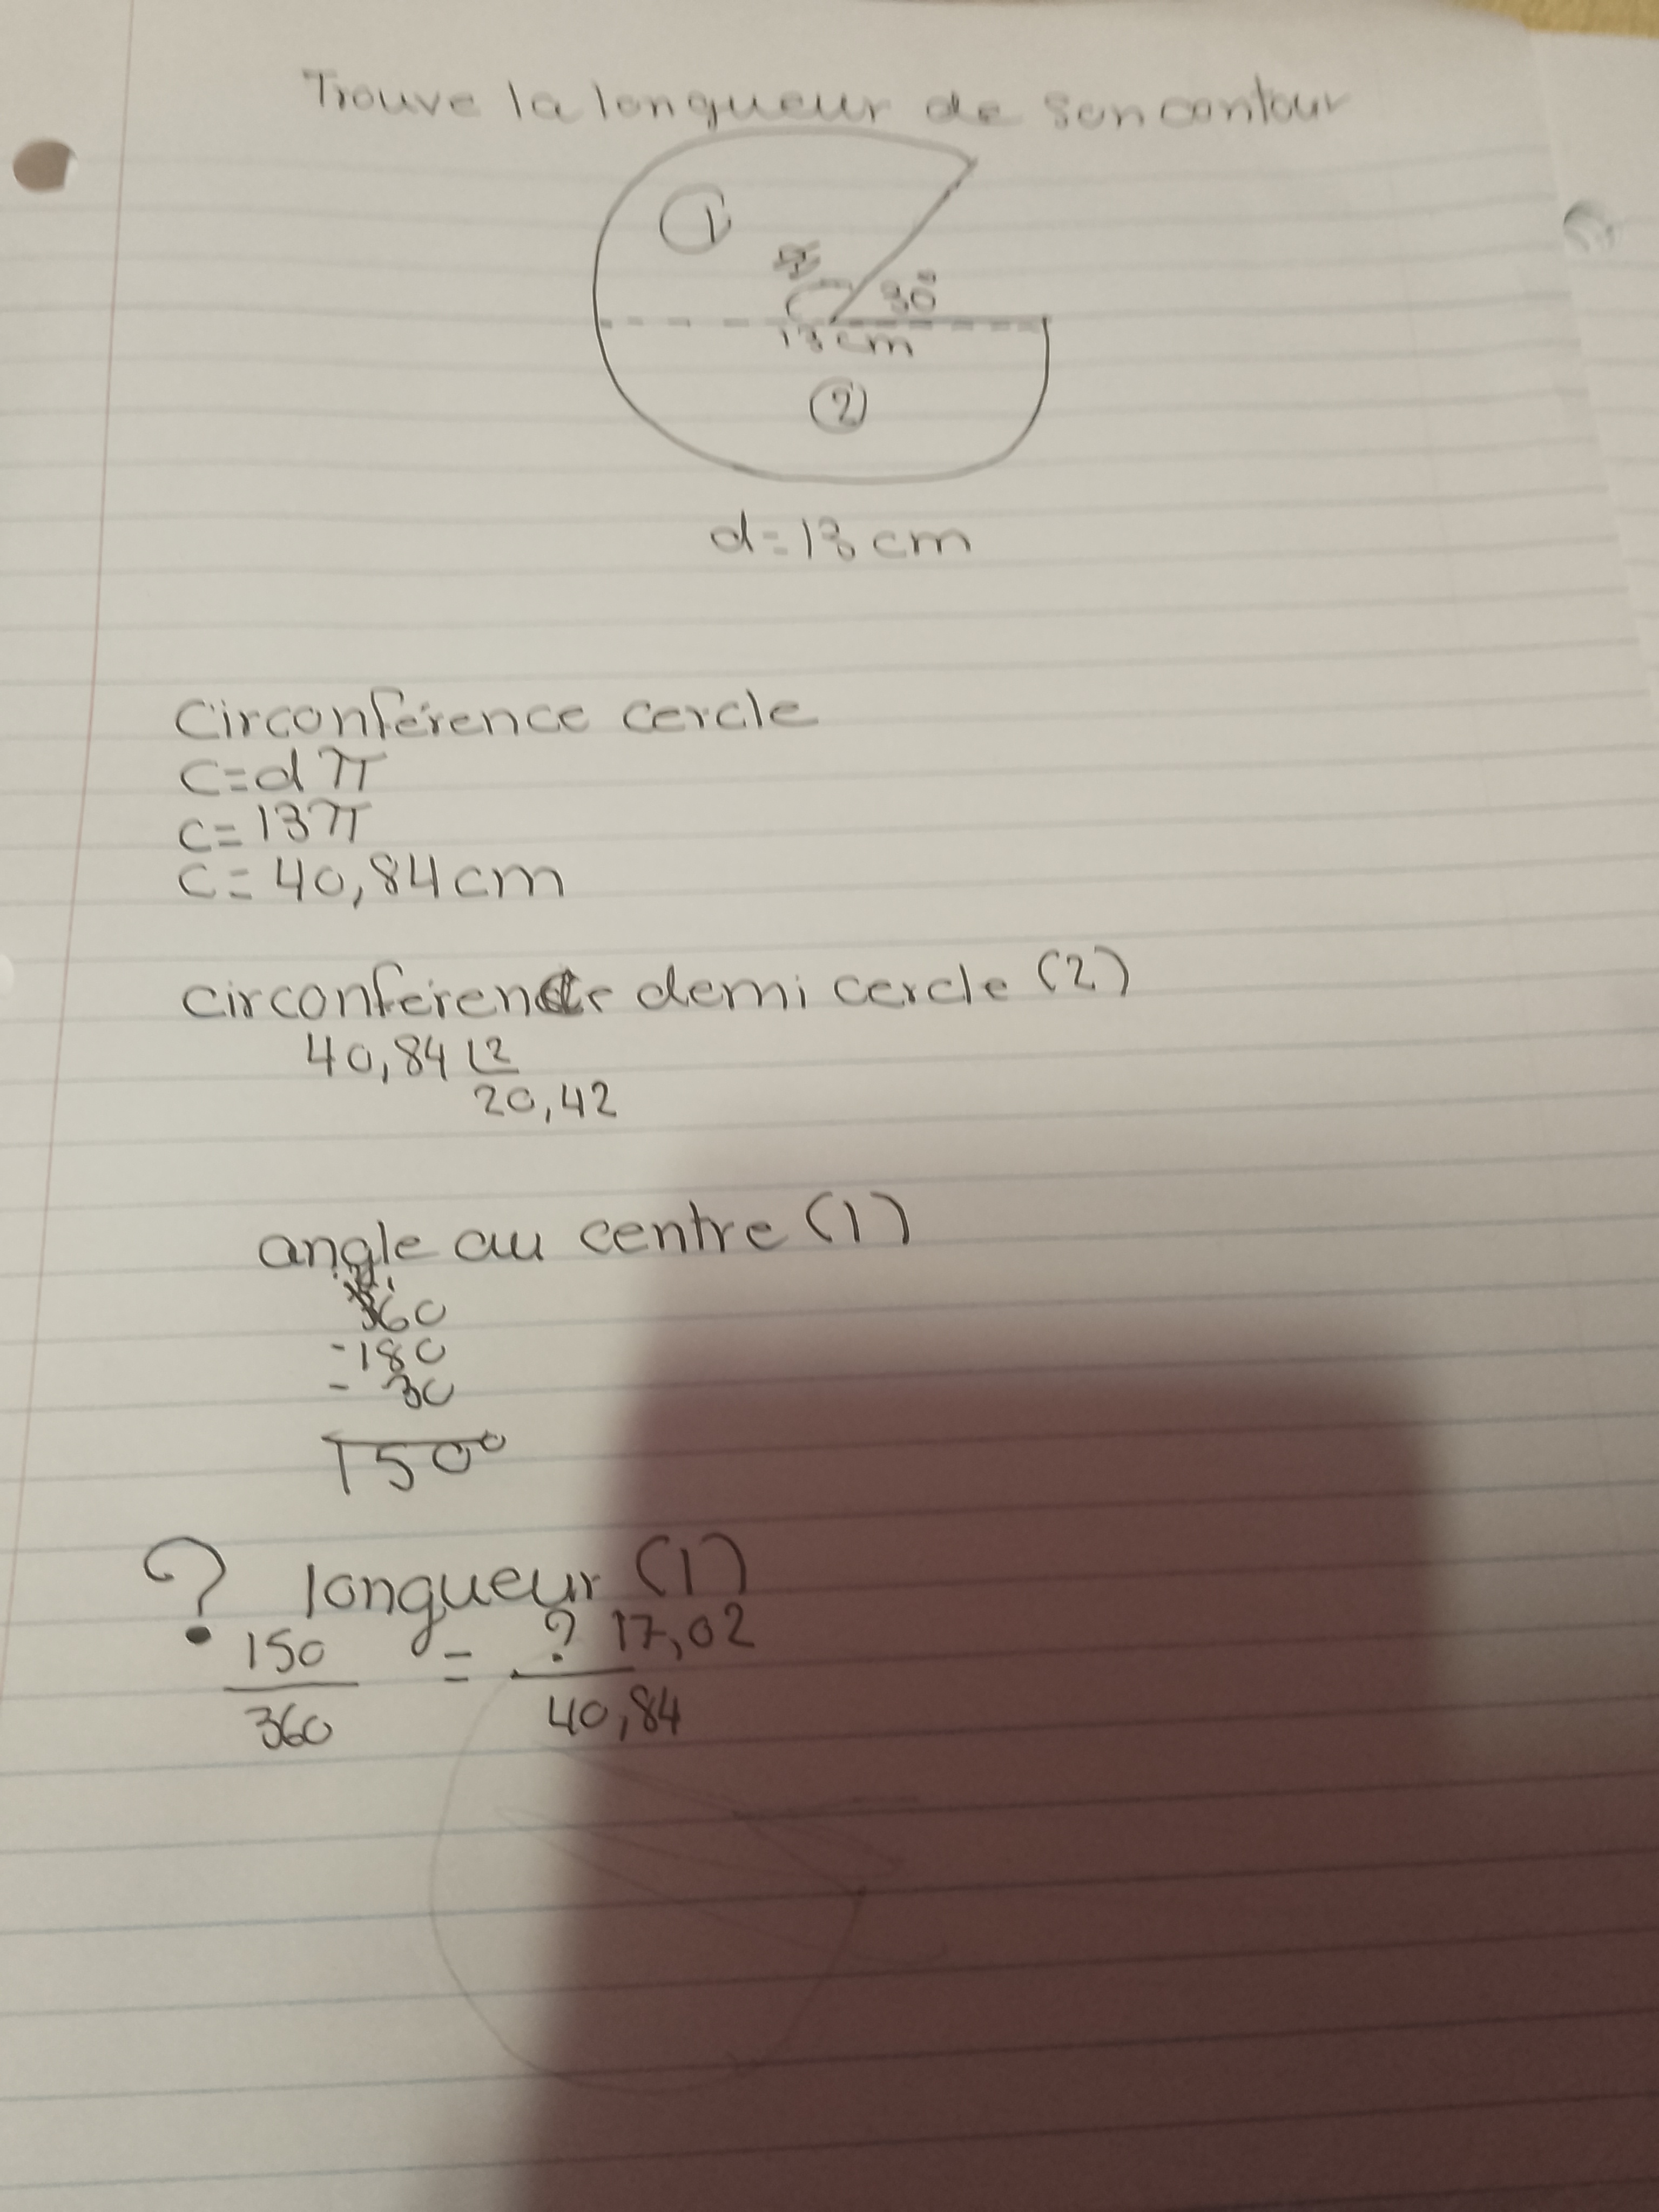 Trouve la longueur de son contour
1
30°
13 cm
2
d=13 cm
Circonférence cercle
C=dπ
C=13π
C=40,84cm
circonférence demi cercle (2)
40,84 2
20,42
angle au centre (1)
360
-180
- 30
150°
? longueur (1)
150 = ? 17,02
360 40,84